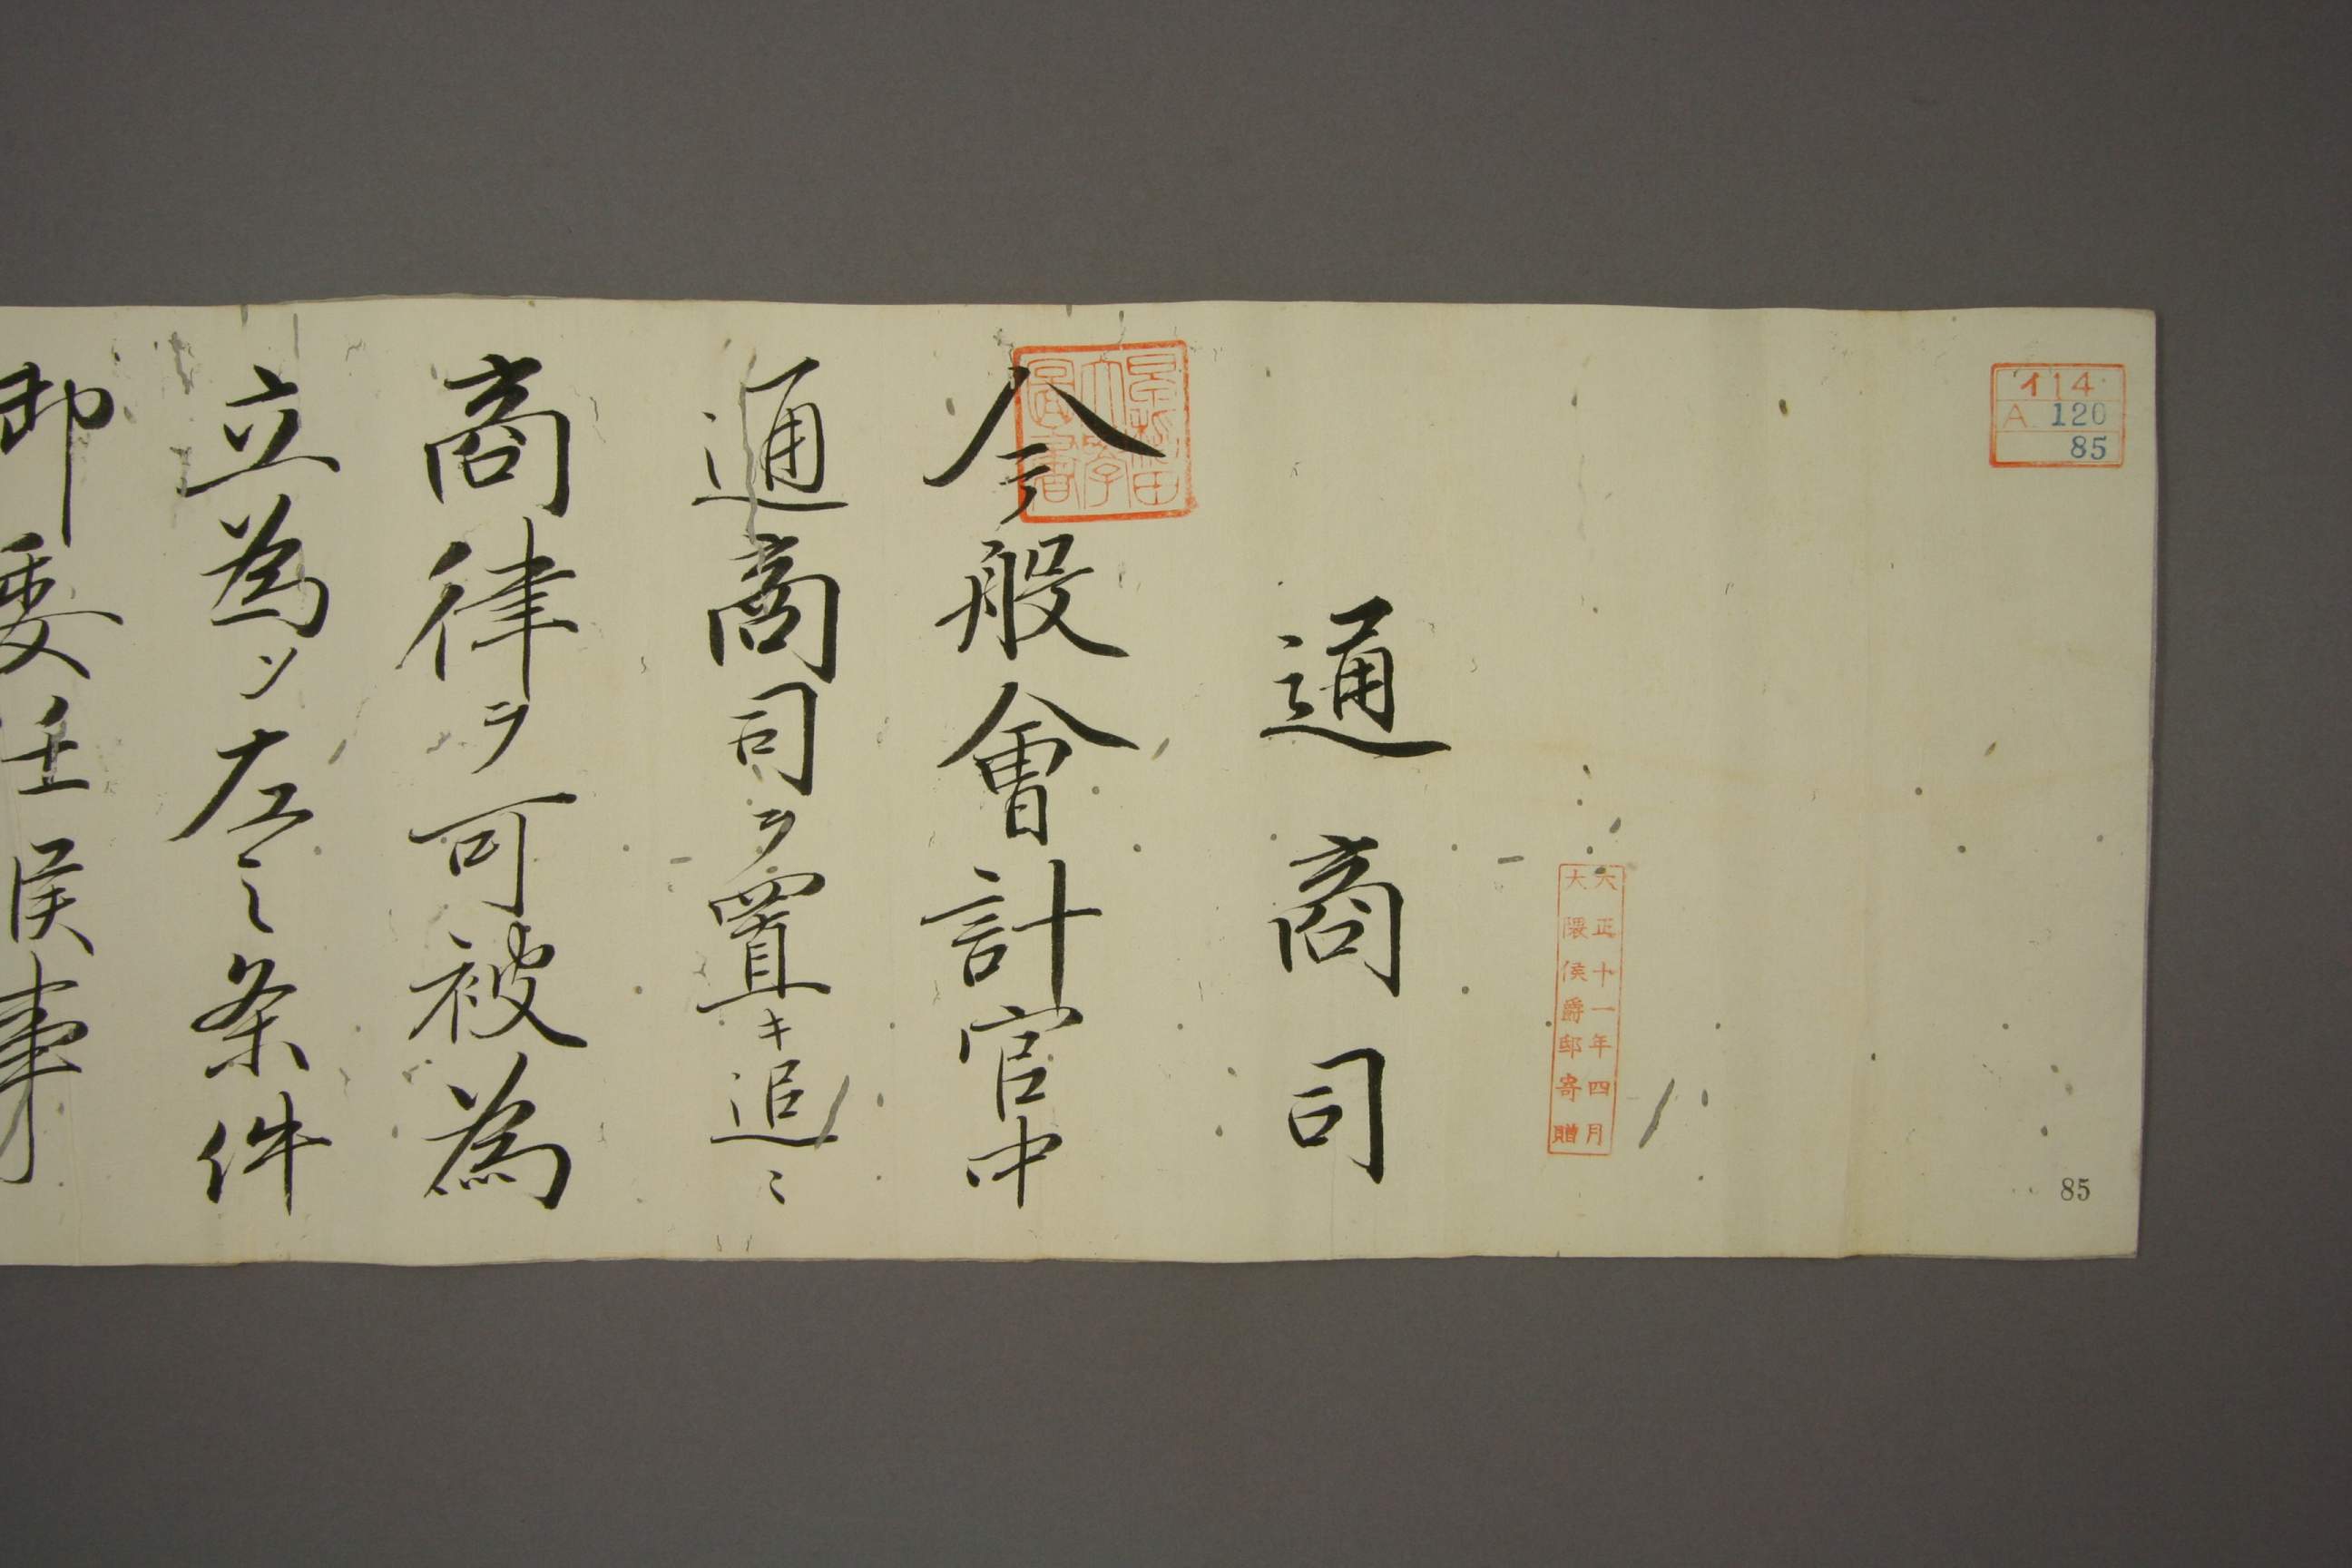 イ14
A 120
85
大正十一年四月
大隈侯爵邸寄贈
85
通商司
早稲田
大學
圖書
今般會計官中
通商司ヲ置キ追ミ
商律ヲ可被為
立為ソ左之条件
御委任候事